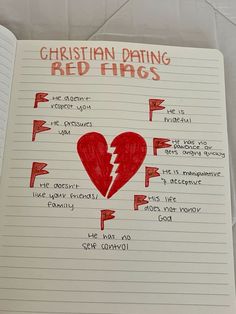 CHRISTIAN DATING
RED FlAGS
He doesn't
respect you
He is
hateful
He pressures
you
He has no
patience or
gets angry quickly
He is manipulative
& deceptive
He doesn't
like your friends/
family
His life
does not honor
God
He has no
self control